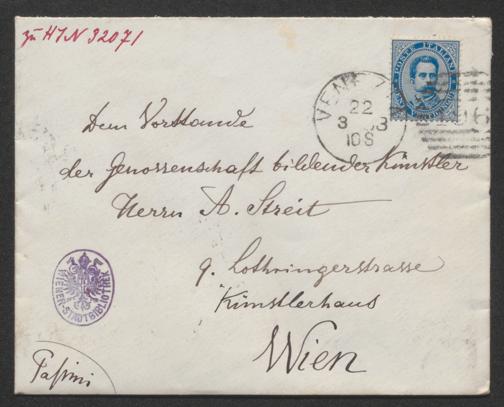 zu HIN 32071
POSTE ITALIANE
VENEZIA
22
3 83
10 S
Dem Vorstande
der Genossenschaft bildender Künstler
Herrn A. Streit
9. Lothringerstrasse
Künstlerhaus
Wien
WIENER-STADTBIBLIOTHEK
Passini